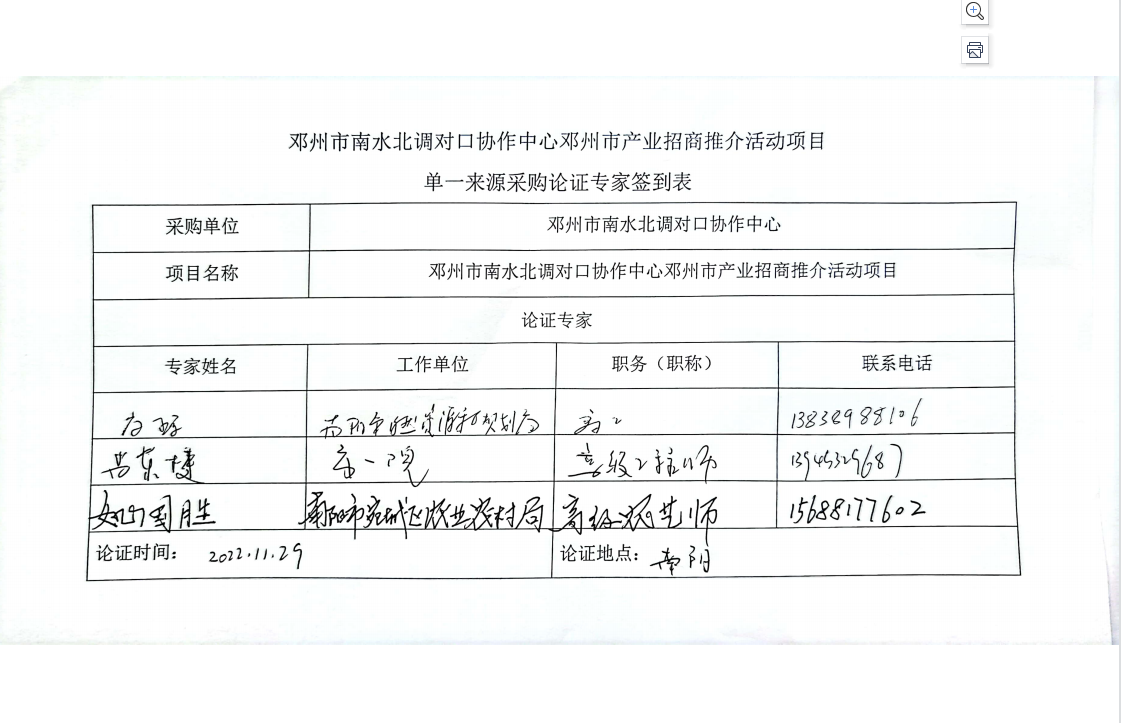 邓州市南水北调对口协作中心邓州市产业招商推介活动项目
单一来源采购论证专家签到表
采购单位 邓州市南水北调对口协作中心
项目名称 邓州市南水北调对口协作中心邓州市产业招商推介活动项目
论证专家
专家姓名 工作单位 职务（职称） 联系电话
南阳市自然资源和规划局 高工 13838988106
高级工程师
国胜 南阳市宛城区农业农村局 高级农艺师 15688177602
论证时间： 2022.11.29 论证地点： 南阳